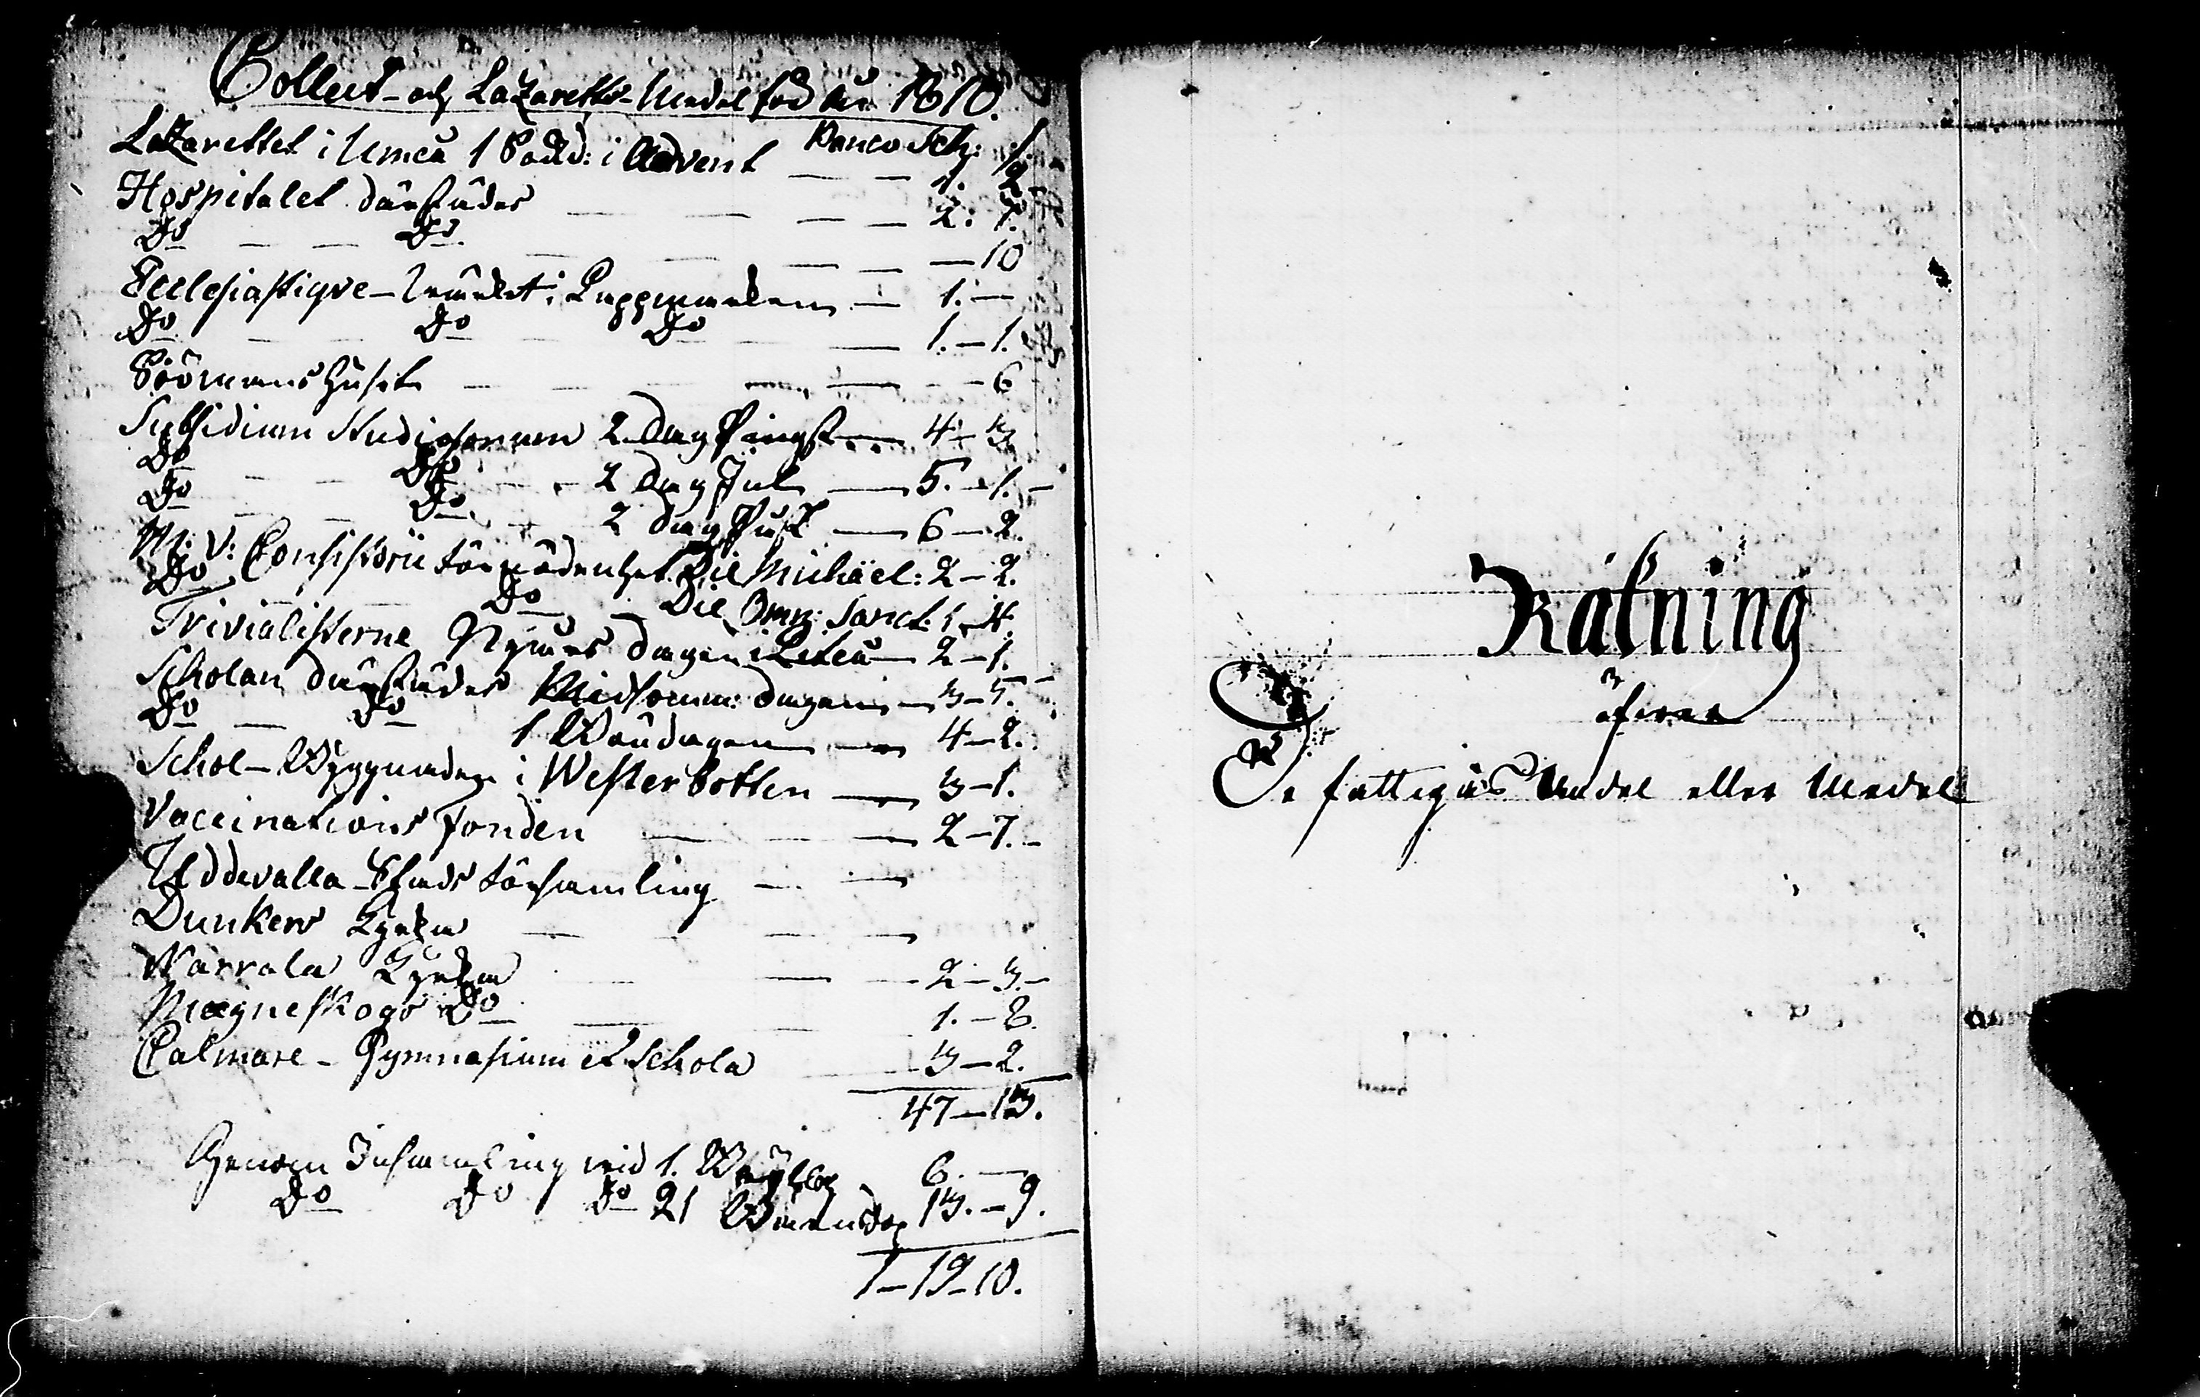 Collect- och Lazaretts-Medel för år 1810.
Banco Sch:
Lazarettet i Umeå 1 Sönd: i Advent — — 1. 2
Hospitalet därstädes — — — 2: 7.
Do — — Do — — — 10
Ecclesiastique-Wärket i Lappmarken — 1. —
Do — Do — Do — 1. — 1.
Siömanshuset — — — 6
Subsidium Studiosorum 2 Dag Pingst — 4 — 3
Do — Do — 2 Dag Jul — 5. — 1. —
Do — Do — 2 Dag Påsk — 6 — 2.
M: V: Consistorii förnödenhet Die Michäel: 2 — 2.
Do — Do — Die Omn: Sanct: 1 — 4.
Trivialisterne Nyårs dagen i Piteå — 2 — 1. —
Scholan därstädes Midsomm: dagen — 3 — 5.
Do — Do 1 Böndagen — 4 — 2.
Schol-Byggnaden i Westerbotten — 3 — 1.
Vaccinations fonden — — 2 — 7. —
Uddevalla Stads församling — —
Dunkers Kyrka — — —
Warvala Kyrka — — 2 — 3. —
Magneskogs Do — — 1. — 8.
Calmare- Gymnasium et Schola 3 — 2.
47 — 13.
Genom Insamling vid 1. 6. —
Do Do Do 21 13. — 9.
1 — 19 — 10.
Räkning
öfver
De fattigas Andel eller Medel